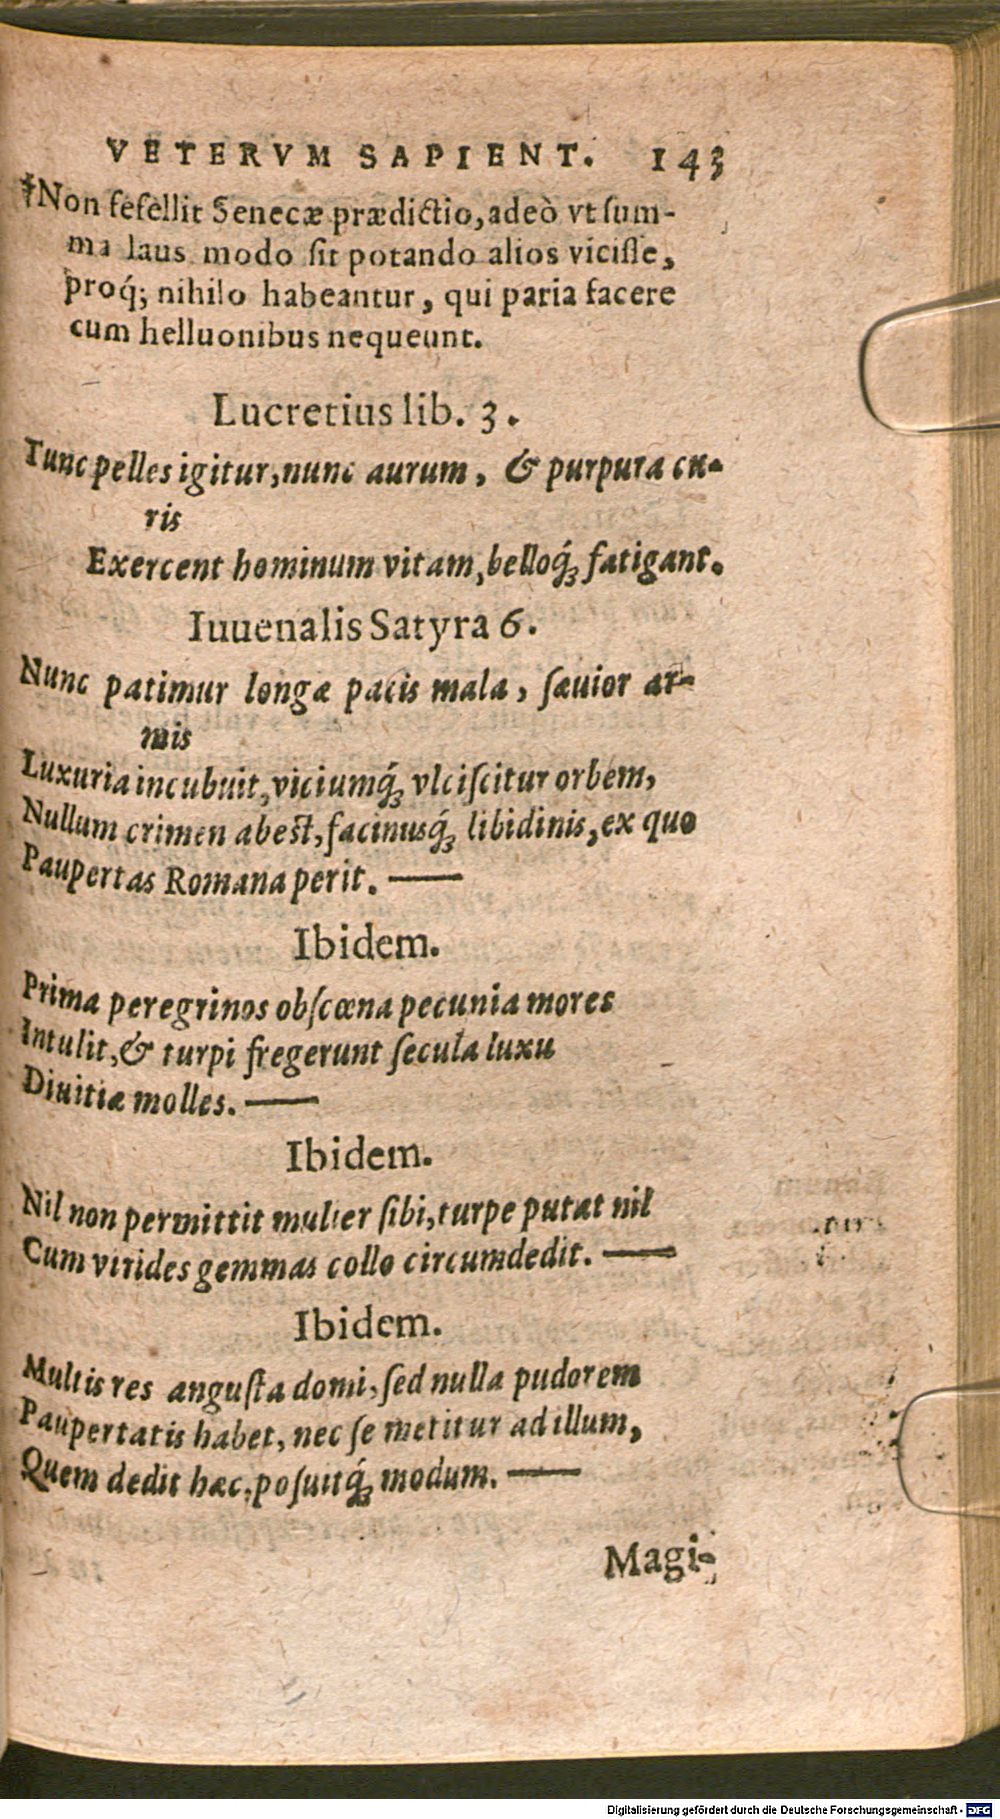 VETERVM SAPIENT. 143
†Non fefellit Senecæ prædictio, adeò vt sum-
ma laus modo sit potando alios vicisse,
proq́; nihilo habeantur, qui paria facere
cum helluonibus nequeunt.
Lucretius lib. 3.
Tunc pelles igitur, nunc aurum, & purpura cu-
ris
Exercent hominum vitam, belloq́; fatigant.
Iuuenalis Satyra 6.
Nunc patimur longæ pacis mala, sæuior ar-
mis
Luxuria incubuit, viciumq́; vlciscitur orbem,
Nullum crimen abest, facinusq́; libidinis, ex quo
Paupertas Romana perit. —
Ibidem.
Prima peregrinos obscœna pecunia mores
Intulit, & turpi fregerunt secula luxu
Diuitiæ molles. —
Ibidem.
Nil non permittit mulier sibi, turpe putat nil
Cum virides gemmas collo circumdedit. —
Ibidem.
Multis res angusta domi, sed nulla pudorem
Paupertatis habet, nec se metitur ad illum,
Quem dedit hæc, posuitq́; modum. —
Magi-
Digitalisierung gefördert durch die Deutsche Forschungsgemeinschaft - DFG